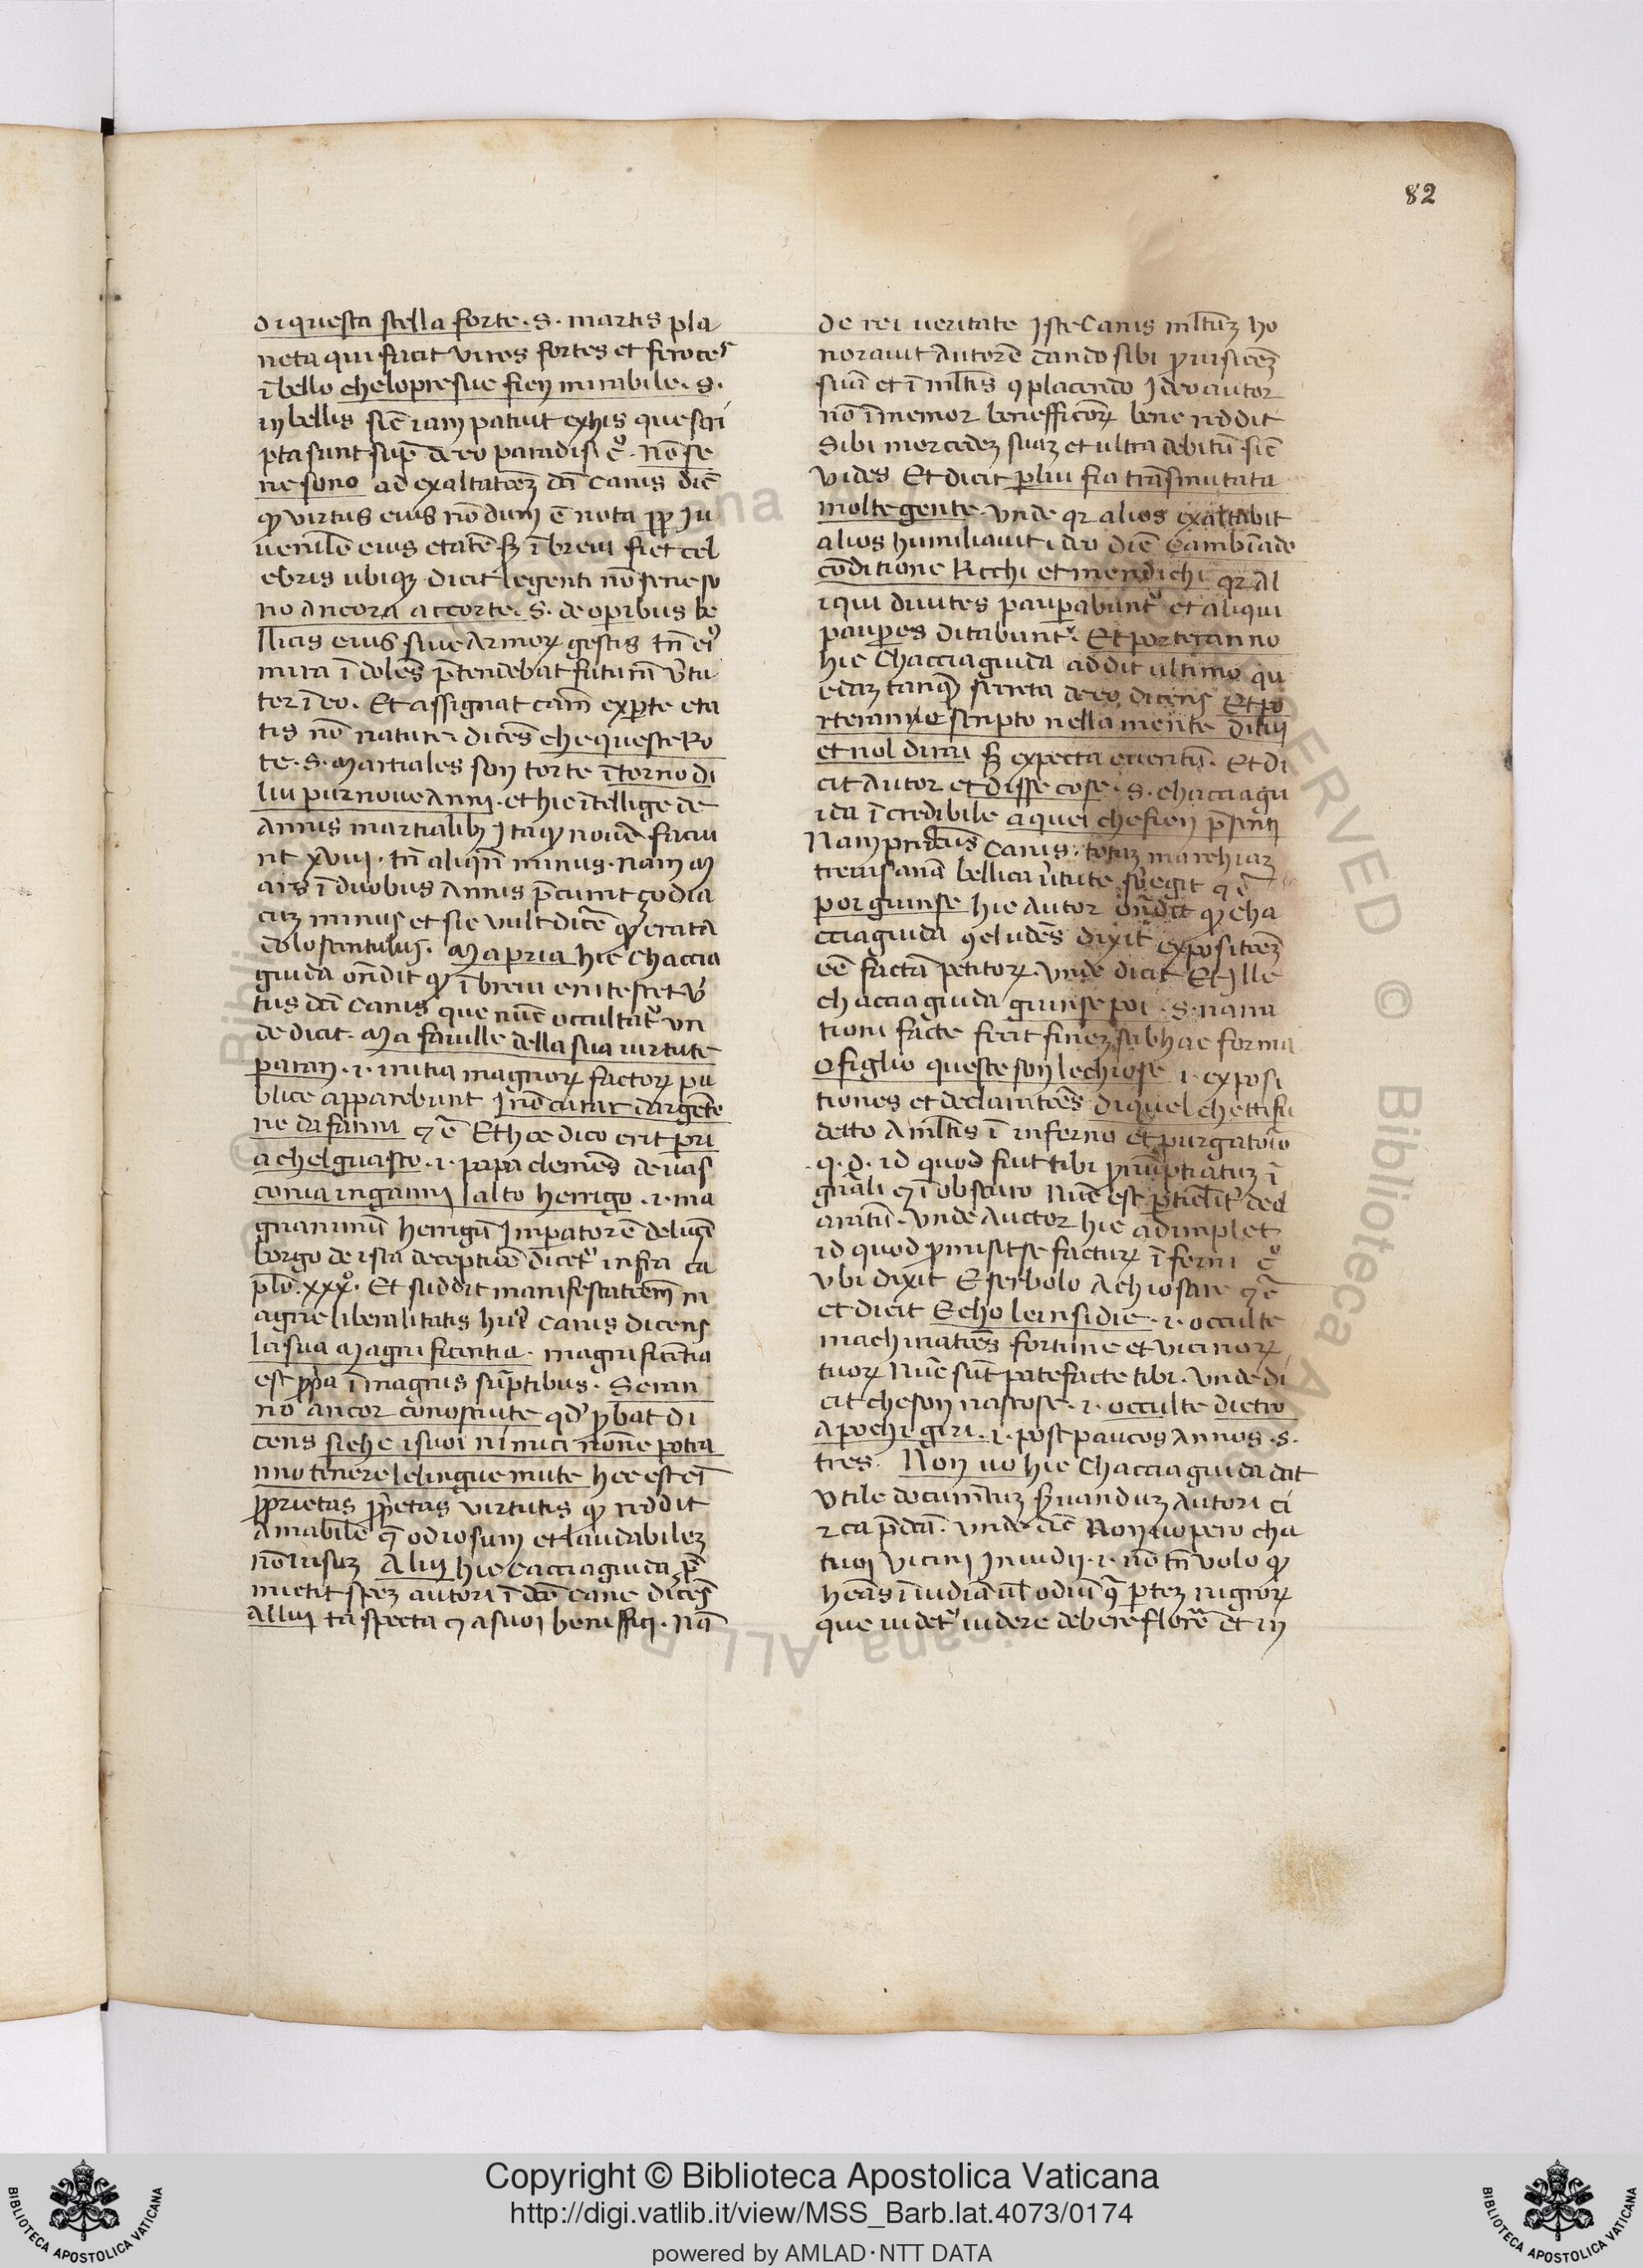 82
di questa stella forte · S · martis pla
neta qui facit viros fortes et feroces
ī bello che lopre sue fien mirabile · S ·
in bellis sic̄ iam patuit ex his que scri
pta sunt sup̄ de eo paradisi c̊ · Nō se
ne sono ad exaltatōeꝫ dn̄i Canis dic̄
ꝙ virtus eius nō dum ē nota ꝓp̄ Ju
venilē eius etatē sꝫ ī brevi fiet cel
ebris ubiqꝫ · dicit legenti nō sene so
no ancora accorte · S · de operibus be
llicis eius sive armoꝝ gestis tn̄ ei9
mira ī doles p̄tendebat futurā v̄tu
teꝫ ī eo · Et assignat cām ex ꝑte eta
tis nō nature dicēs che queste Ro
te · S · Martiales son torte ītorno di
lui pur nove Anni · et hic ītellige de
Annis martialibꝫ Ita ꝙ novē faciu
nt xviij · tn̄ aliqn̄ minus · nam M
ars ī duobus Annis p̄currit zodia
cuꝫ minus et sic vult dicē ꝙ erat a
dolescentulus · Ma pria hic Chaccia
guida on̄dit ꝙ ī brevi enitescet v̄
tus dn̄i Canis que nūc occultat᷑ vn
de dicit · Ma faville della sua virtute
paran · i · initia magnoꝝ factoꝝ pu
blice apparebunt I nō curar dargēto
ne daffanni ⁊ c̄ Et hoc dico erit pri
a chel guasco · i · papa clemēs de vas
conia inganni l alto herrigo · i · ma
gnanimū herrigū Imꝑatorē de lucē
borgo de ista deceptiōe dicet᷑ infra ca
plō · xxx̊ · Et suddit manifestatōem m
agne liberalitatis hui9 Canis dicens
la sua Magnificentia · magnificētia
est ꝓp̄a ī magnis sūptibus · Seran
no ancor conosciute qd̄ ꝓbat di
cens siche i suoi nimici nonne potra
nno tenere le lingue mute hec est ei
ꝓprietas virtutis ꝙ reddit
Amabilē q̄ odiosum et laudabileꝫ
nō visuꝫ A lui hic Cacciaguida p̄
mictit speꝫ autori ī dc̄o Cane dicēs
A llui ta specta ⁊ a suoi beneffici · Nā
de rei veritate Iste Canis ml̄tuꝫ ho
noravit Autorē dando sibi ꝓvisiōeꝫ
suā et ī ml̄tis ꝯplacendo Ideo autor
nō īmemor benefficioꝝ bene reddit
Sibi mercedeꝫ suaꝫ et ultra debitū sic̄
vides Et dicit per lui fia trāsmutata
molte gente · Vnde qꝛ alios exaltabit
alios humiliavit ideo dic̄ Cambiā do
cōditione Ricchi et mendichi qꝛ Al
iqui divites pauꝑabunt᷑ et aliqui
pauꝑes ditabunt᷑ · Et porteranno
hic Chacciaguida addit ultimo qu
edaꝫ tanqꝫ secreta de eo dicens Et po
rteranno scripto nella mente di lui
et nol dirai sꝫ expecta eventū · Et di
cit Autor et disse cose · S · chacciagu
ida īcredibile a quei che fien p̄senti
Nam p̄dictus Canis · totaꝫ marchiaꝫ
trevisanā bellica v̄tute subegit ⁊ c̄
por giunse hic Autor on̄dit ꝙ cha
cciaguida ꝯcludēs dixit expositōeꝫ
eē factā petitoꝝ · Vnde dicit Et Ille
chacciaguida giunse poi · S · narra
tioni facte fecit fineꝫ sub hac forma
O figlio queste son le chiose · i · exposi
tiones et declaratōes di quel che tti fu
detto A ml̄tis ī inferno et purgatorio
· q · d · id quod fuit tibi ꝓnūptiatuꝫ ī
gn̄ali ⁊ ī obscuro Nūc est ꝑticl̄it᷑ decl
aratū · Vnde Auctor hic adimplet
id quod ꝓmisit se facturꝝ īferni c̊
Vbi dixit E serbolo A chiosare ⁊ c̄
et dicit Echo le insidie · i · occulte
machinatiōes fortune et vicinoꝝ
tuoꝝ Nūc sūt patefacte tibi · Vnde di
cit che son nascose · i · occulte dietro
A pochi giri · i · post paucos Annos · S ·
tres · Non vo hic Chacciaguida dat
Vtile documētuꝫ ſ̄vanduꝫ Autori ci
rca p̄dc̄a · Vnde dic̄ Non vo pero cha
tuoi vicini Invidij · i · nō tn̄ volo ꝙ
heās īvidiā vl̄ odiū ꝯtra ꝑteꝫ nigroꝝ
que videt᷑ videre debere florē et in
Copyright © Biblioteca Apostolica Vaticana
http://digi.vatlib.it/view/MSS_Barb.lat.4073/0174
powered by AMLAD·NTT DATA
BIBLIOTECA APOSTOLICA VATICANA
BIBLIOTECA APOSTOLICA VATICANA